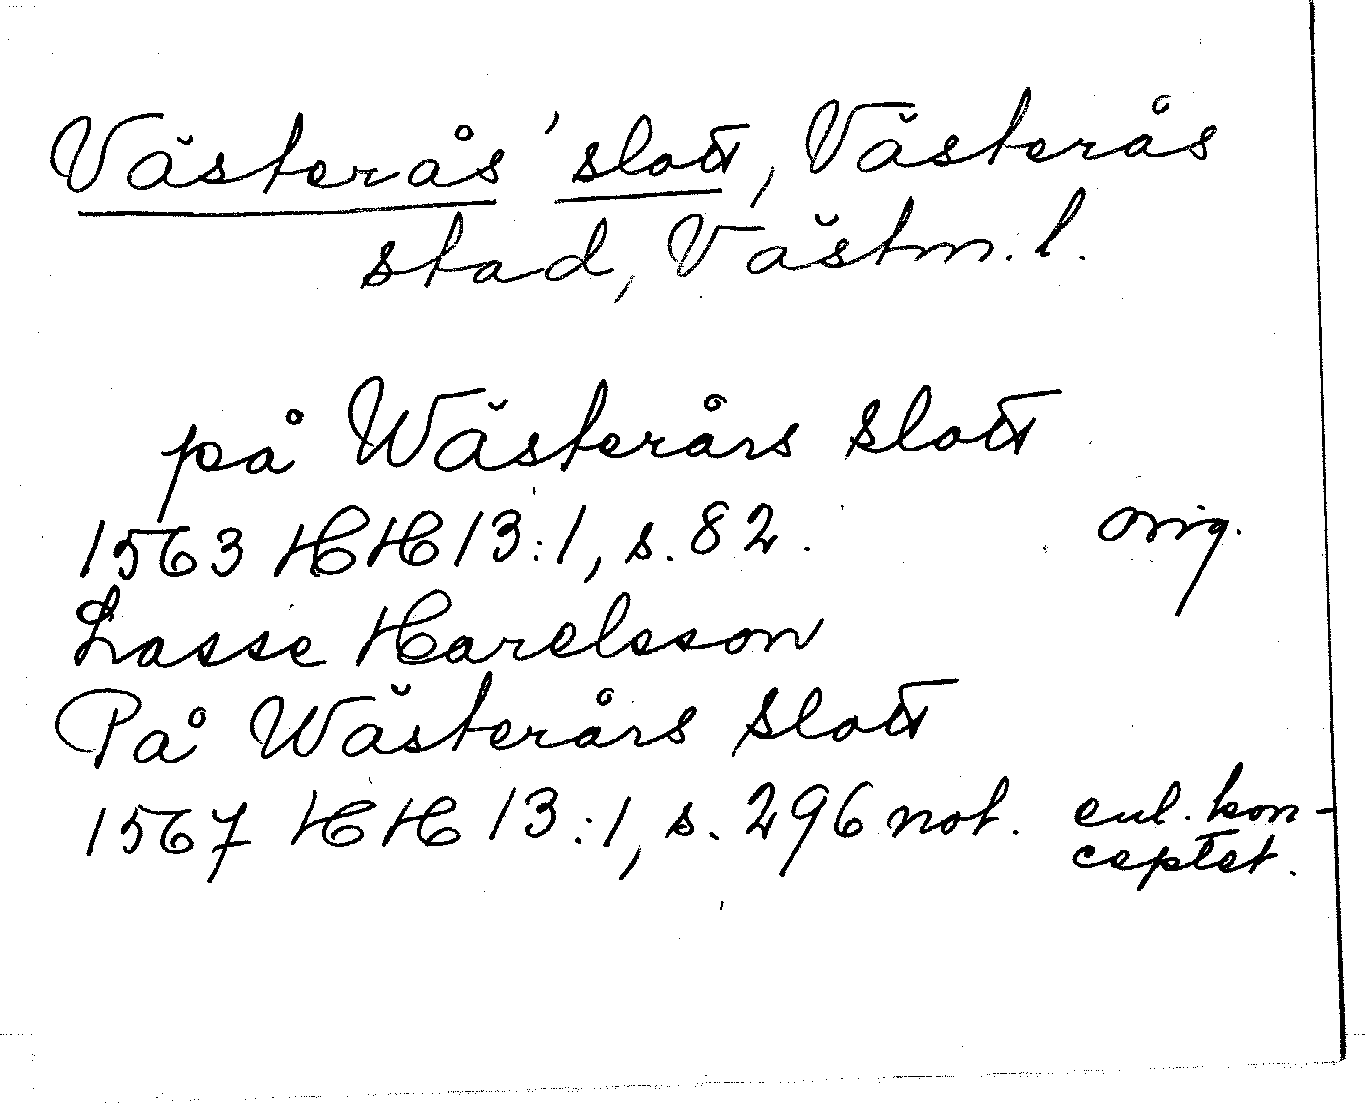 Västerås' slott, Västerås
stad, Västm. l.
på Wästerårs slott
1563 HH 13:1, s. 82. orig.
Lasse Harelsson
På Wästerårs slott
1567 HH 13:1, s. 296 not. enl. kon-
ceptet.